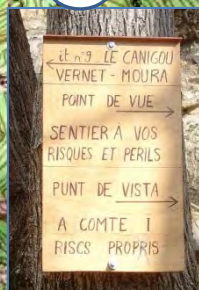 it n°9 LE CANIGOU
VERNET - MOURA
POINT DE VUE
SENTIER À VOS
RISQUES ET PERILS
PUNT DE VISTA
A COMTE I
RISCS PROPRIS